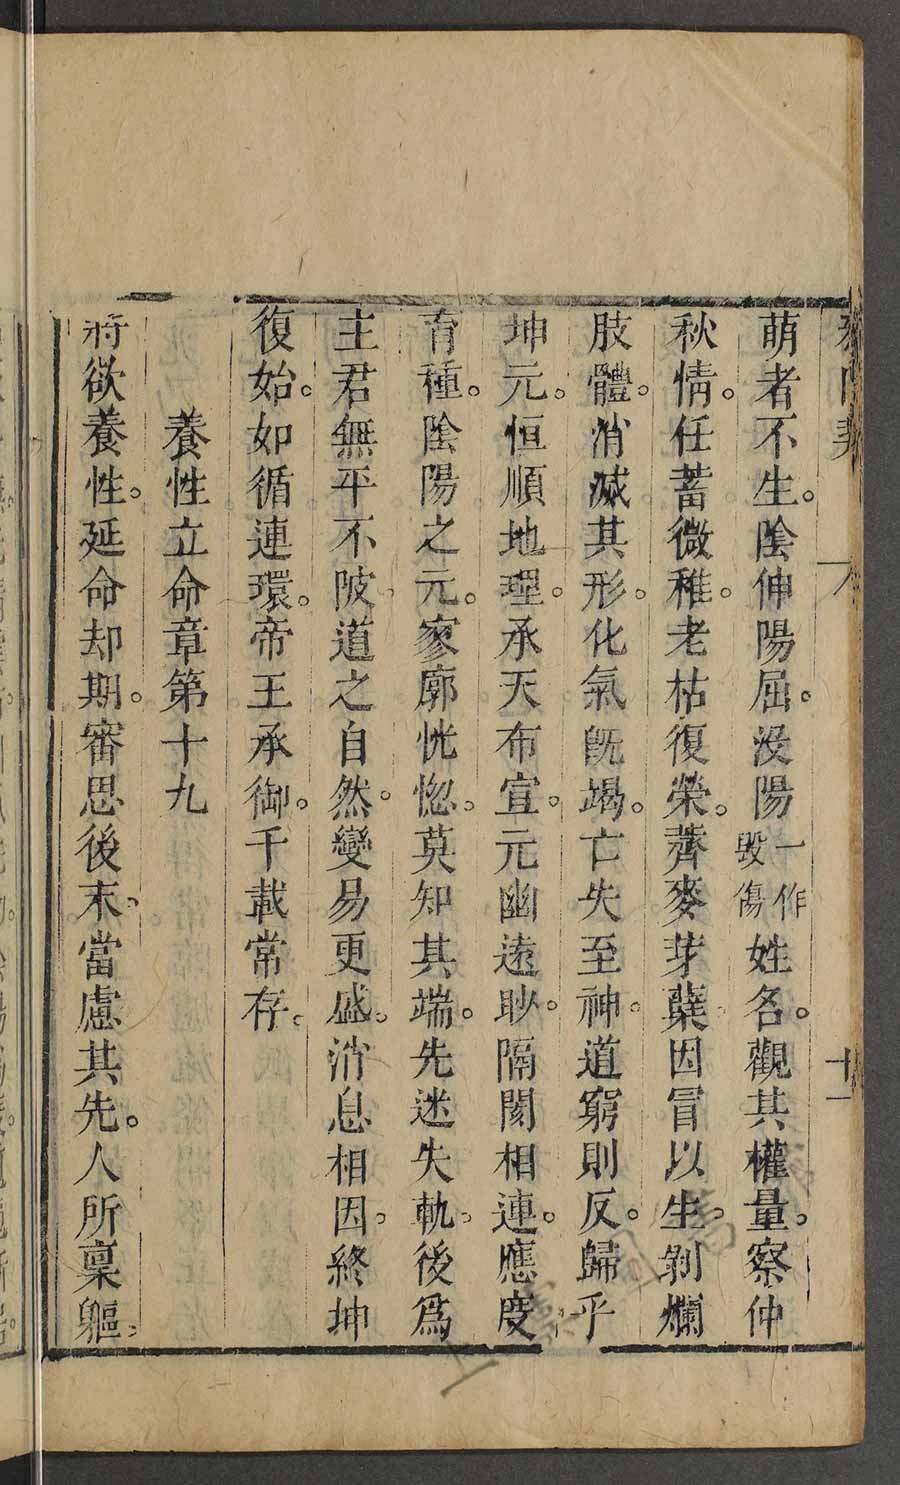 萌者不生。陰伸陽屈。沒陽一作毀傷姓名。觀其權量。察仲
秋情。任蓄微稚。老枯復榮。薺麥芽蘖。因冒以生。剝爛
肢體。消滅其形。化氣旣竭。亡失至神。道窮則反。歸乎
坤元。恒順地理。承天布宣。元幽遠眇。隔閡相連。應度
育種。陰陽之元。寥廓恍惚。莫知其端。先迷失軌。後爲
主君。無平不陂。道之自然。變易更盛。消息相因。終坤
復始。如循連環。帝王承御。千載常存。
養性立命章第十九
將欲養性。延命却期。審思後末。當慮其先。人所稟軀。
十一